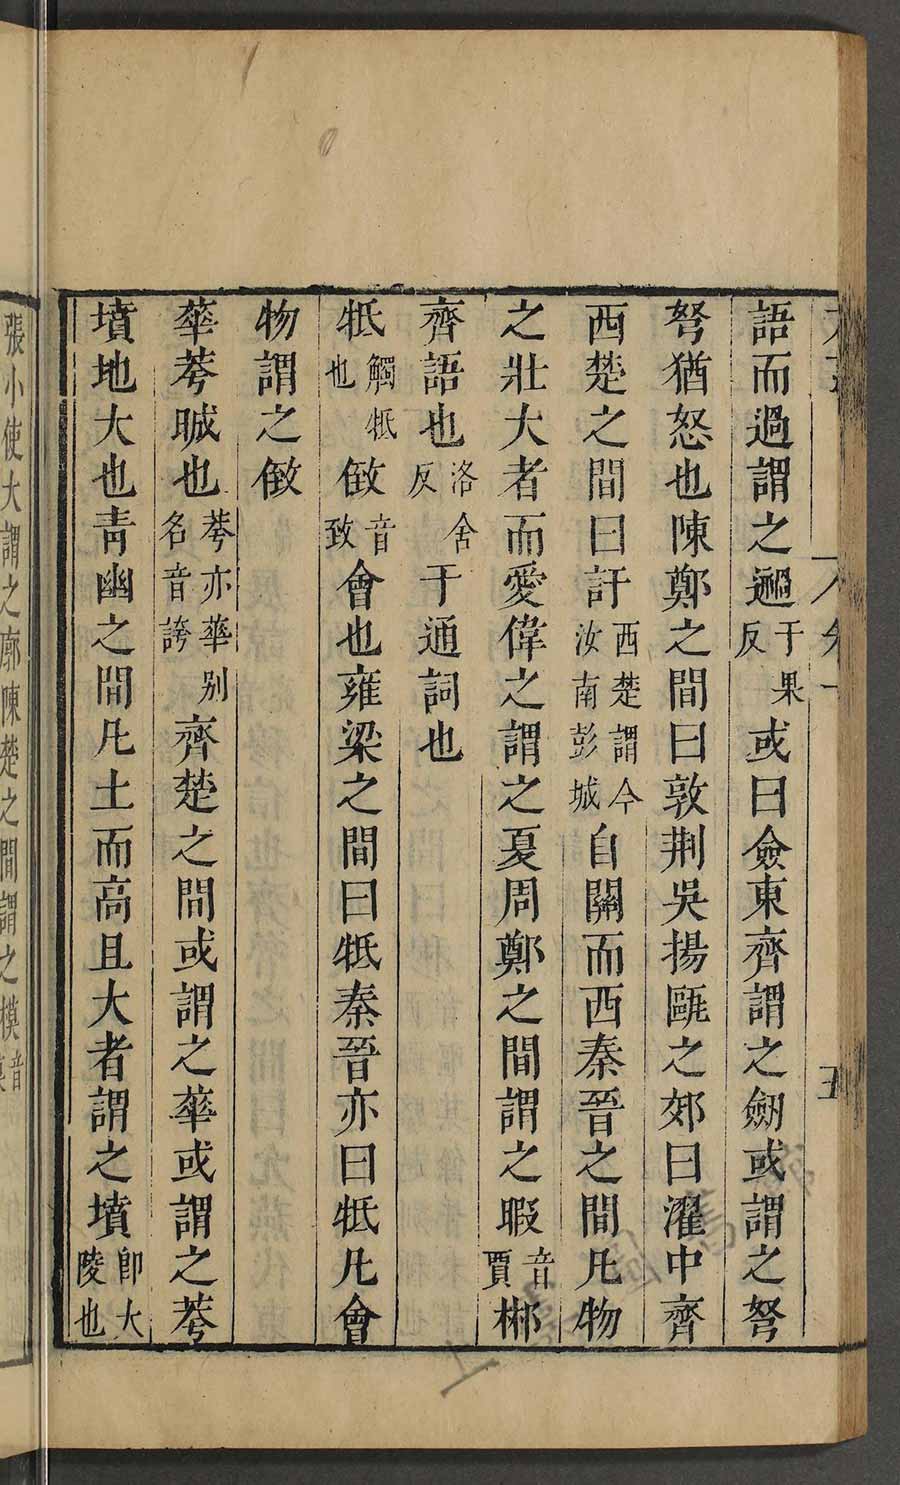 語而過謂之䢔于果反或曰僉東齊謂之劒或謂之弩
弩猶怒也陳鄭之間曰敦荆吳揚甌之郊曰濯中齊
西楚之間曰訏西楚謂今汝南彭城自關而西秦晉之間凡物
之壯大者而愛偉之謂之夏周鄭之間謂之暇音賈郴
齊語也洛舍反于通詞也
牴觸牴也㑄音致會也雍梁之間曰牴秦晉亦曰牴凡會
物謂之㑄
華荂晠也荂亦華别名音誇齊楚之間或謂之華或謂之荂
墳地大也青幽之間凡土而高且大者謂之墳卽大陵也
張小使大謂之廓陳楚之間謂之模音